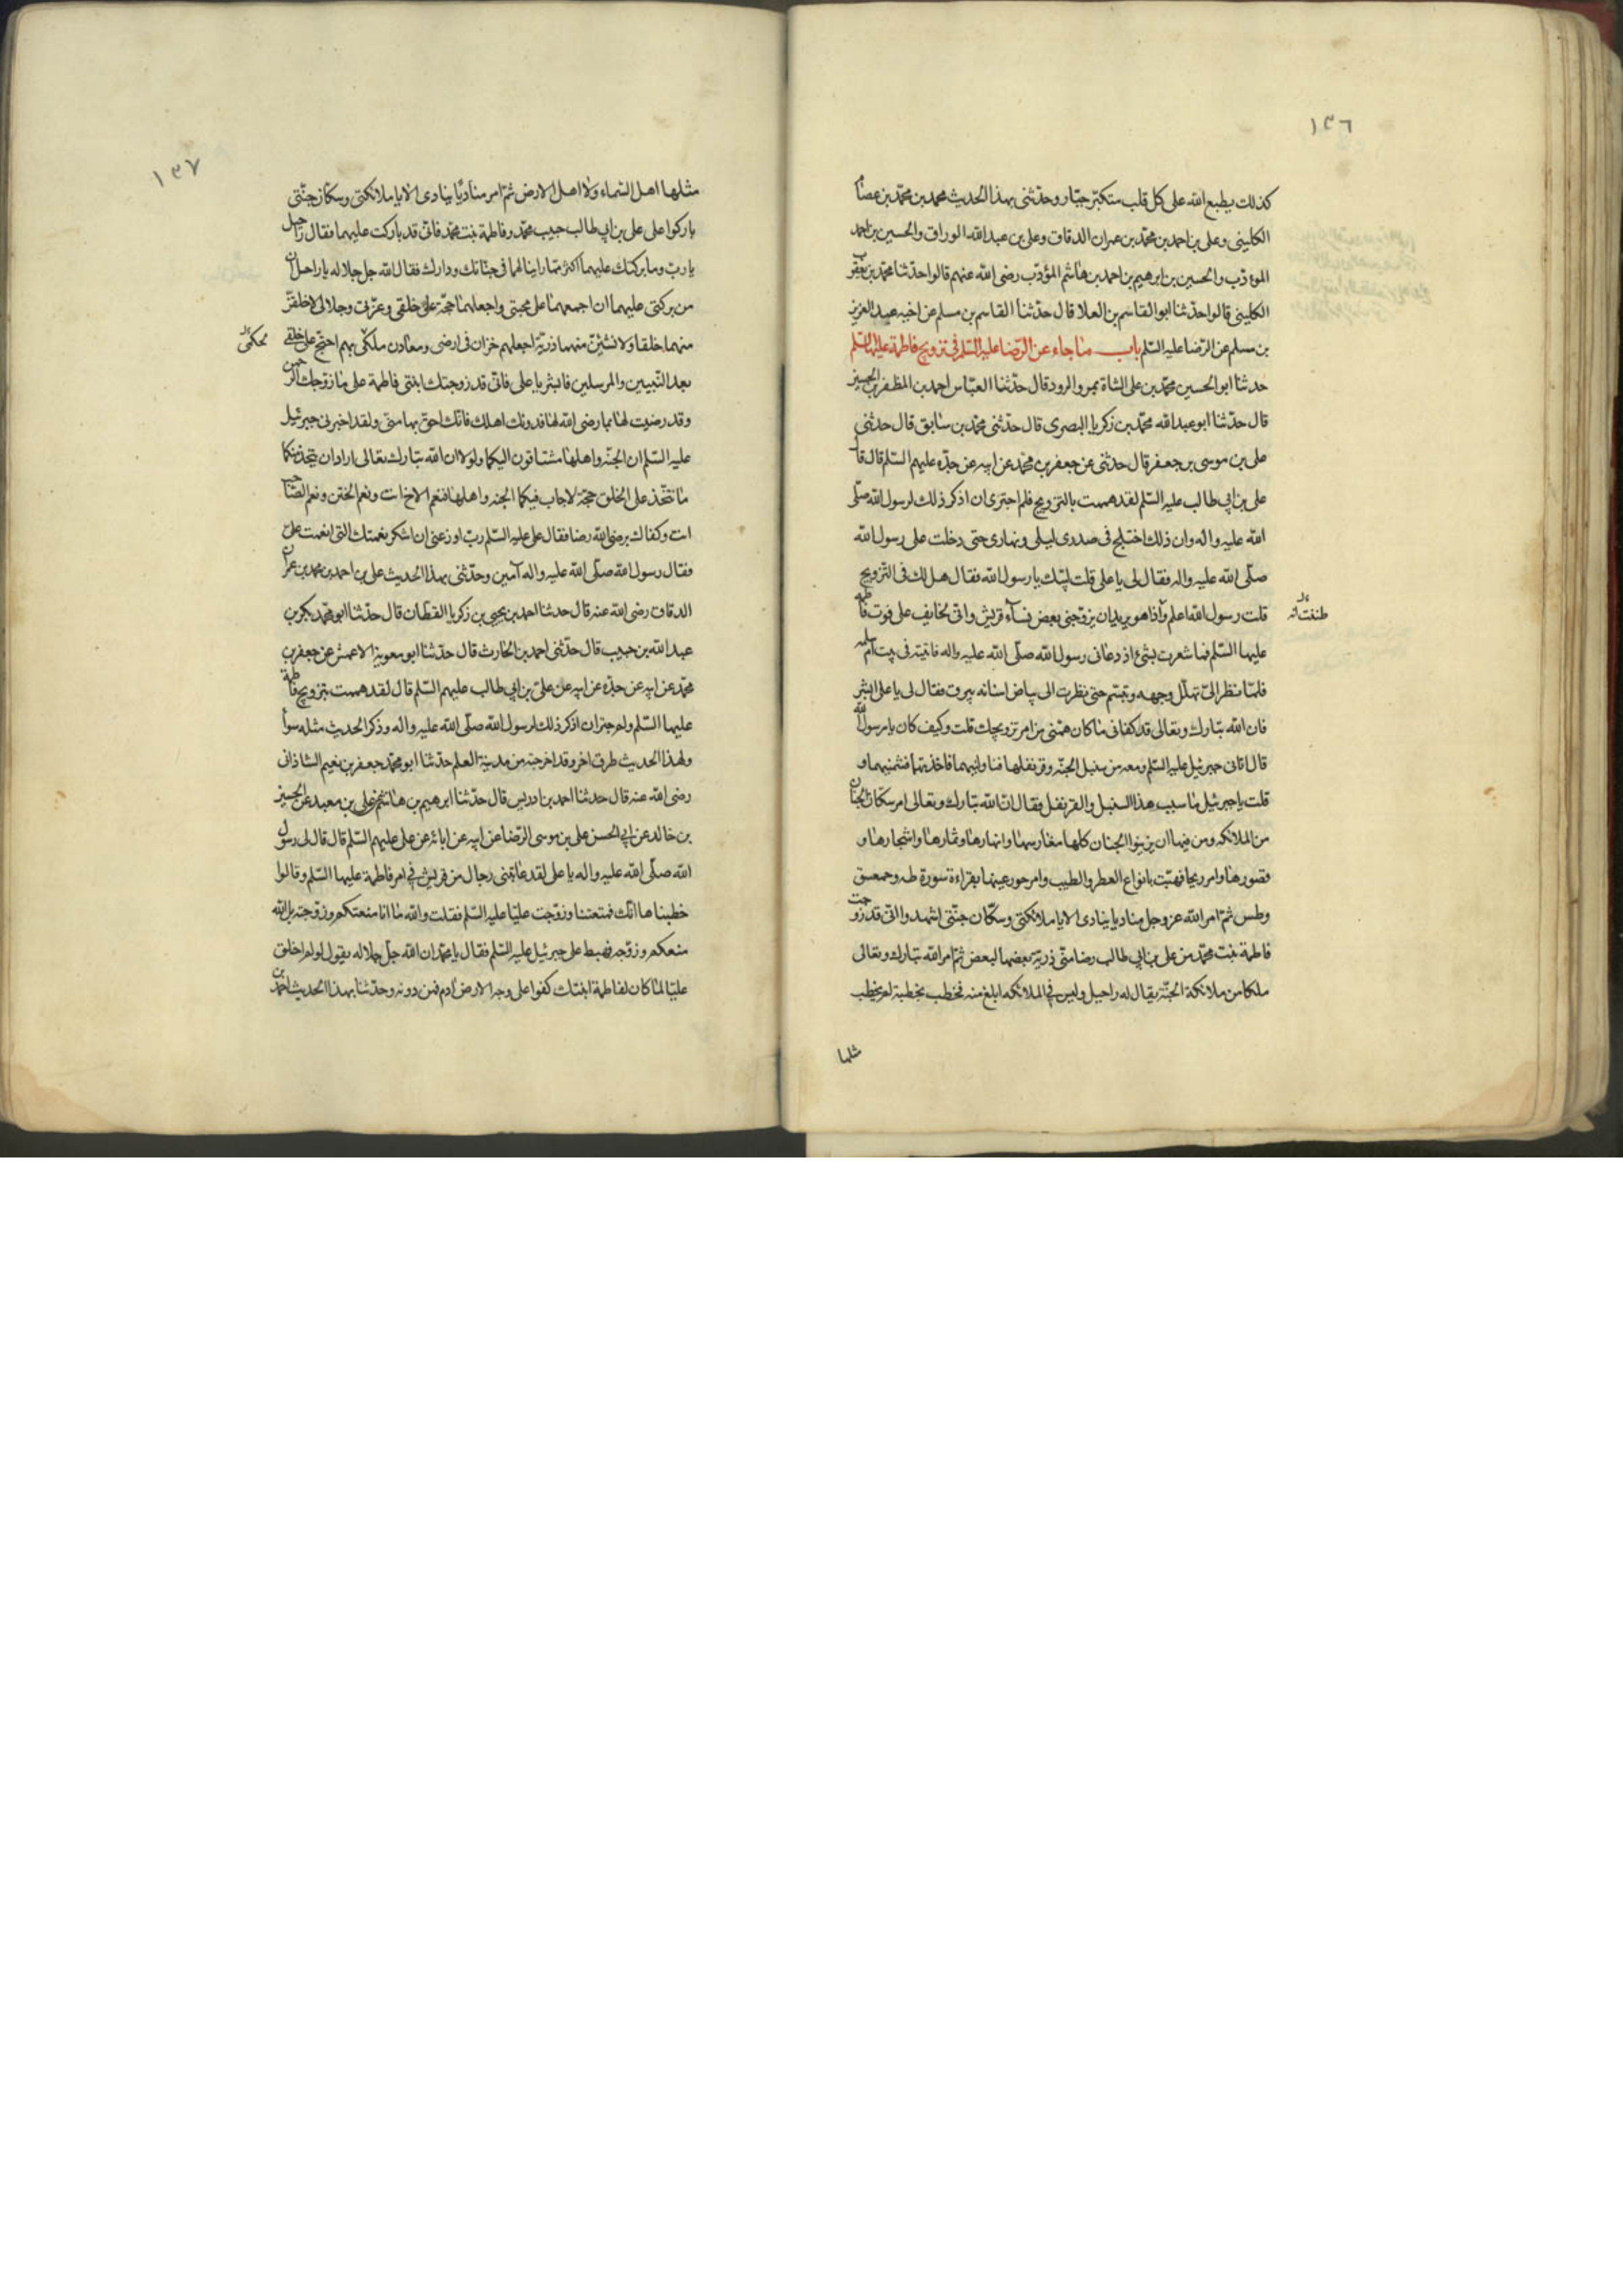 ١٣٦
كذلك يطبع الله على كل قلب متكبر جبار وحدثنى بهذا الحديث محمد بن محمد بن عصام
الكلينى وعلى بن احمد بن محمد بن عمران الدقاق وعلى بن عبد الله الوراق والحسين بن احمد
المؤدب والحسين بن ابرهيم بن احمد بن هاشم المؤدب رضى الله عنهم قالوا حدثنا محمد بن يعقوب
الكلينى قالوا حدثنا ابو القاسم بن العلا قال حدثنا القاسم بن مسلم عن اخيه عبد العزيز
بن مسلم عن الرضا عليه السلم باب ما جاء عن الرضا عليه السلم فى تزويج فاطمة عليها السلم
حدثنا ابو الحسين محمد بن على الشاة بمرو الرود قال حدثنا العباس احمد بن المظفر بن الحسين
قال حدثنا ابو عبد الله محمد بن زكريا البصرى قال حدثنى محمد بن سابق قال حدثنى
على بن موسى بن جعفر قال حدثنى عن جعفر بن محمد عن ابيه عن جده عليهم السلم قال قال
على بن ابى طالب عليه السلم لقد هممت بالتزويج فلم اجترى ان اذكر ذلك لرسول الله صلى
الله عليه واله وان ذلك اختلج فى صدرى ليلى ونهارى حتى دخلت على رسول الله
صلى الله عليه واله فقال لى يا على قلت لبيك يا رسول الله فقال هل لك فى التزويج
قلت رسول الله اعلم واذا هو يريد ان يزوجنى بعض نساء قريش وانى لخايف على فوت فاطمة
عليها السلم فما شعرت بشئ اذ دعانى رسول الله صلى الله عليه واله فاتيته فى بيت ام سلمه
فلما نظر الى تهلل وجهه وتبسم حتى نظرت الى بياض اسنانه يبرق فقال لى يا على ابشر
فان الله تبارك وتعالى قد كفانى ما كان همنى من امر تزويجك قلت وكيف كان يا رسول الله
قال اتانى جبرئيل عليه السلم ومعه من سنبل الجنه وقرنفلها فناولنيهما فاخذتهما فشممتهما و
قلت يا جبرئيل ما سبب هذا السنبل والقرنفل فقال ان الله تبارك وتعالى امر سكان الجنان
من الملائكه ومن فيها ان يزينوا الجنان كلها مغارسها وانهارها وثمارها واشجارها و
قصورها وامر ريحا فهبت بانواع العطر والطيب وامر حور عينها بقراءة سورة طه وحمعسق
وطس ثم امر الله عز وجل مناديا ينادى الا يا ملائكتى وسكان جنتى اشهدوا انى قد زوجت
فاطمة بنت محمد من على بن ابى طالب رضا منى ذرية بعضها لبعض ثم امر الله تبارك وتعالى
ملكا من ملائكة الجنة يقال له راحيل وليس فى الملائكه ابلغ منه فخطب بخطبة لم يخطب
مثلها
١٣٧
مثلها اهل السماء ولا اهل الارض ثم امر مناديا ينادى الا يا ملائكتى وسكان جنتى
باركوا على على بن ابى طالب حبيب محمد وفاطمة بنت محمد فانى قد باركت عليهما فقال راحيل
يا رب وما بركتك عليهما اكثر مما راينا لهما فى جنانك ودارك فقال الله جل جلاله يا راحيل ان
من بركتى عليهما ان اجمعهما على محبتى واجعلهما حجة على خلقى وعزتى وجلالى لاخلقن
منهما خلقا ولانشئن منهما ذرية اجعلهم خزان فى ارضى ومعادن ملكى بهم احتج على خلقى لحكمى
بعد النبيين والمرسلين فابشر يا على فانى قد زوجتك ابنتى فاطمة على ما زوجك الرحمن
وقد رضيت لها بما رضى الله لها فدونك اهلك فانك احق بها منى ولقد اخبرنى جبرئيل
عليه السلم ان الجنه واهلها مشتاقون اليكما ولولا ان الله تبارك تعالى اراد ان يتخذ منكما
ما يتخذ على الخلق حجة لاجاب فيكما الجنه واهلها فنعم الاخ انت ونعم الختن ونعم الصاحب
انت وكفاك برضى الله رضا فقال على عليه السلم رب اوزعنى ان اشكر نعمتك التى انعمت على
فقال رسول الله صلى الله عليه واله آمين وحدثنى بهذا الحديث على بن احمد بن محمد بن عمران
الدقاق رضى الله عنه قال حدثنا احمد بن يحيى بن زكريا القطان قال حدثنا ابو محمد بكر بن
عبد الله بن حبيب قال حدثنى احمد بن الحارث قال حدثنا ابو معوية الاعمش عن جعفر بن
محمد عن ابيه عن جده عن ابيه عن على بن ابى طالب عليهم السلم قال لقد هممت بتزويج فاطمة
عليها السلم ولم اجتر ان اذكر ذلك لرسول الله صلى الله عليه واله وذكر الحديث مثله سواء
ولهذا الحديث طرق اخر وقد اخرجته من مدينة العلم حدثنا ابو محمد جعفر بن نعيم الشاذانى
رضى الله عنه قال حدثنا احمد بن ادريس قال حدثنا ابرهيم بن هاشم عن على بن معبد عن الحسين
بن خالد عن ابى الحسن على بن موسى الرضا عن ابيه عن ابائه عن على عليهم السلم قال قال لى رسول
الله صلى الله عليه واله يا على لقد عاتبنى رجال من قريش فى امر فاطمة عليها السلم وقالوا
خطبناها اليك فمنعتنا وزوجت عليا عليه السلم فقلت والله ما انا منعتكم وزوجته بل الله
منعكم وزوجه فهبط على جبرئيل عليه السلم فقال يا محمد ان الله جل جلاله يقول لو لم اخلق
عليا لما كان لفاطمة ابنتك كفوا على وجه الارض ادم فمن دونه وحدثنا بهذا الحديث احمد بن